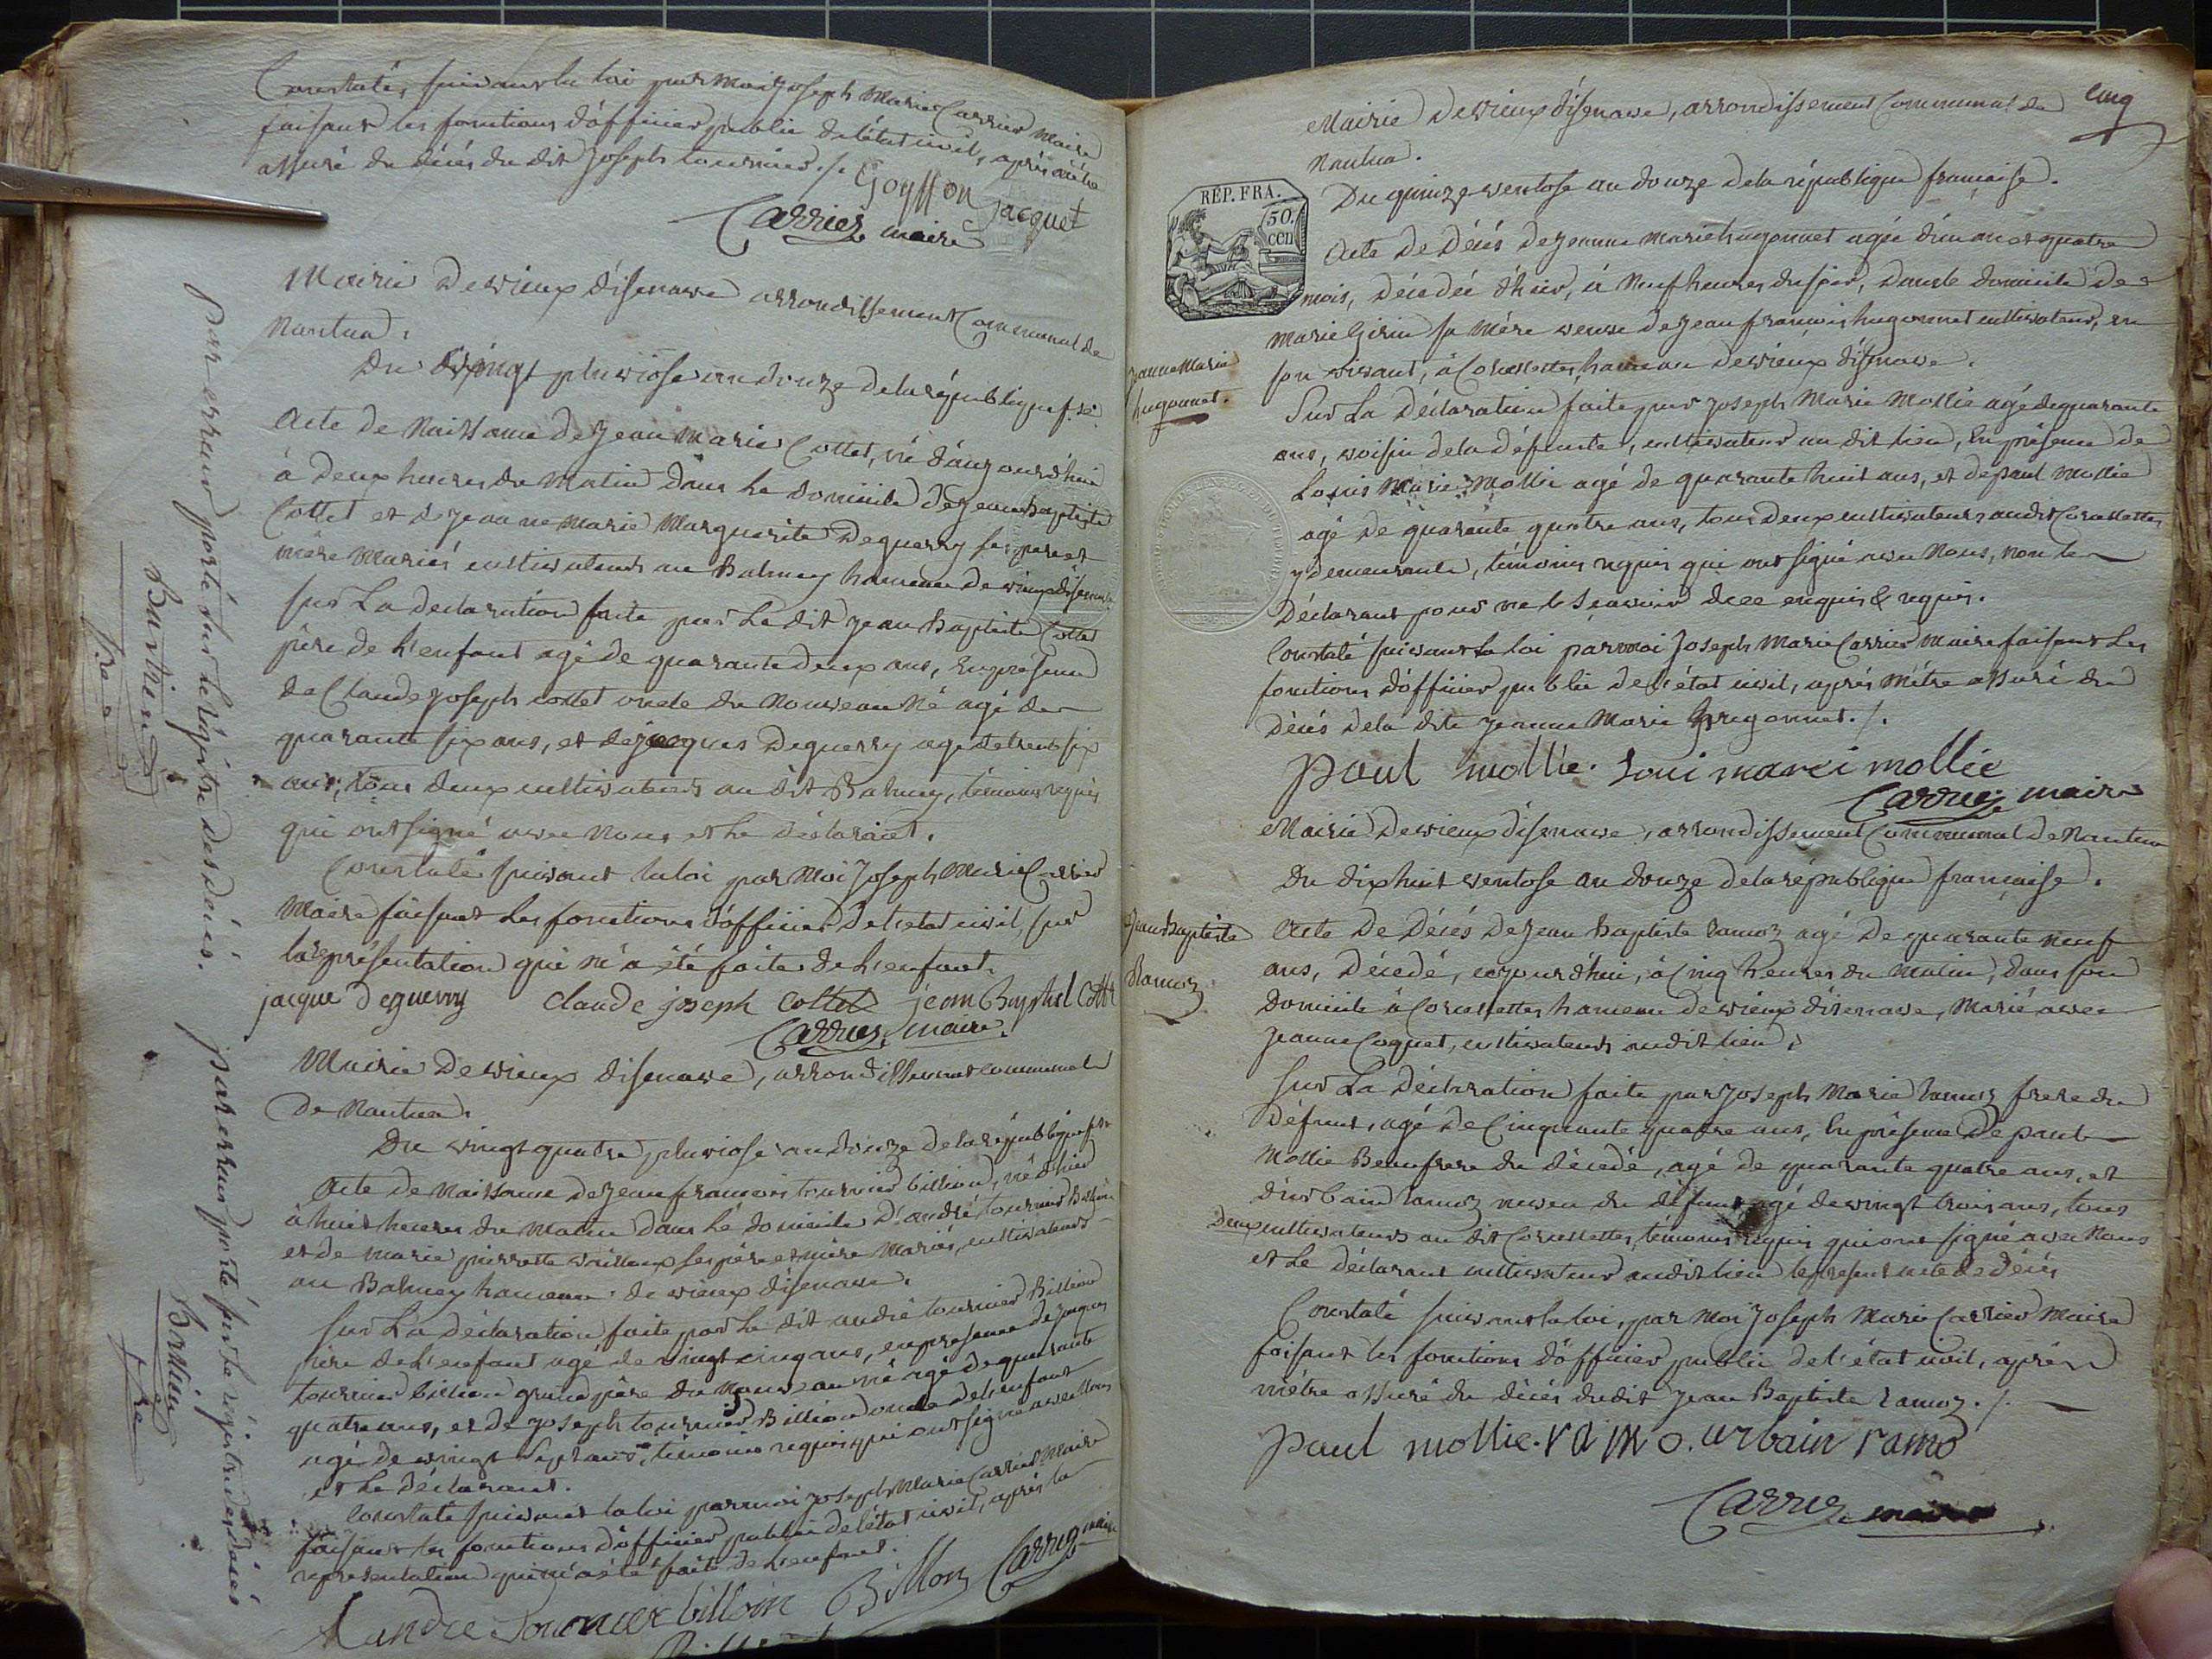 Constaté, suivant la loi par moi Joseph Marie Carrier Maire
faisant les fonctions d'officier public de l'état civil, après m'être
assuré du décés du dit Joseph tournier ./.
Goyffon
jacquet
Carrier maire
Mairie de vieux d'isenave arrondissement Communal de
Nantua.
Du vingt pluviôse an douze de la république f.se
Acte de Naissance de Jean Marie Cottet, né d'aujourd'hui
à deux heures du matin dans le domicile de Jean Baptiste
Cottet et de Jeanne Marie Marguerite Deguerry ses pere et
mère mariés cultivateurs au Balmey hameau de vieux d'isenave
sur La declaration faite par le dit Jean Baptiste Cottet
père de l'enfant agé de quarante deux ans, En présence
de Claude Joseph cottet oncle du Nouveau Né agé de
quarante six ans, et de jacques Deguerry agé de trente six
ans, tous deux cultivateurs au dit Balmey, témoins requis
qui ont signé avec Nous et Le déclarant.
Constaté suivant la loi par Moi Joseph Marie Carrier
Maire faisant Les fonctions d'officier de l'etat civil, sur
la représentation qui m'a été faite de L'enfant.
jacque deguerry claude joseph Cottet jean Baptist Cott
Carrier, maire.
Mairie De vieux disenave, arrondissement communal
De Nantua.
Du vingt quatre pluviose an douze de la république f.se
Acte de Naissance de Jean françois tournier billion, né d'hier
à huit heures du Matin dans Le domicile D'andré tournier Billion
et de marie pierrette vailloux ses père et mère Mariés, cultivateurs
au Balmey hameau de vieux d'isenave.
sur La déclaration faite par Le dit andré tournier Billion
père de L'enfant agé de vingt cinq ans, en presence de jacques
tournier billion grand père du Nouveau né agé de quarante
quatre ans, et de joseph tournier Billion oncle de l'enfant
agé de vingt Sept ans, témoins requis qui ont signé avec Nous
et Le déclarant.
Constaté suivant la loi par moi joseph Marie Carrier Maire
faisant les fonctions d'officier public de l'état civil, après la
representation qui m'a été faite de L'enfant.
andre tournier billion Billon Carrier maire
par erreur porté sur le régistre des décés.
par erreur porté sur le régistre des décés
cinq
Mairie de vieux d'isenave, arrondissement Communal de
Nantua.
Du quinze ventose an douze de la république française.
RÉP. FRA.
50.
cen
Acte de Décés de Jeanne Marie hugonnet agée d'un an et quatre
mois, décedée d'hier, à Neuf heures du soir, dans le domicile de
Marie Girin sa Mère veuve de Jean françois hugonnet cultivateur, en
son vivant, à Corcelettes, hameau de vieux d'isenave.
Jeanne Marie
hugonnet.
Sur La Déclaration faite par Joseph Marie Mollie agé de quarante
ans, voisin de la défunte, cultivateur au dit lieu, En présence de
Louis Marie Mollie agé de quarante huit ans, et de paul Mollie
agé de quarante quatre ans, tous deux cultivateurs audit Corcelettes
y demeurants, témoins requis qui ont signé avec Nous, non le
Déclarant pour ne le Scavoir de ce enquis & requis.
Constaté suivant la loi par moi Joseph Marie Carrier Maire faisant Les
fonctions d'officier public de l'état civil, après m'être assuré du
Décés de la dite Jeanne Marie hugonnet ./.
paul mollie. Loui marei mollie
Carrier maire
Mairie De vieux d'isenave, arrondissement Communal de Nantua
Du dix huit ventose an douze de la république française.
Jean Baptiste
Ramoz
Acte De Décés de Jean Baptiste ramoz agé de quarante neuf
ans, Décedé, cejourd'hui, à Cinq heures du Matin, dans son
Domicile à Corcelettes hameau de vieux d'isenave, Marié avec
Jeanne Coquet, cultivateurs audit lieu.
Sur La Déclaration faite par Joseph Marie ramoz frere du
Défunt, agé de Cinquante quatre ans, En présence De paul
Mollie Beaufrere du Décedé, agé de quarante quatre ans, et
d'urbain ramoz neveu du défunt agé de vingt trois ans, tous
Deux cultivateurs au dit Corcelettes, témoins requis qui ont signé avec Nous
et Le déclarant cultivateur audit lieu le présent acte de Décés
Constaté suivant la loi, par Moi Joseph Marie Carrier Maire
faisant les fonctions d'officier public de l'état civil, après
m'être assuré du décés dudit Jean Baptiste ramoz ./.
paul mollie. ramo. urbain ramo
Carrier maire